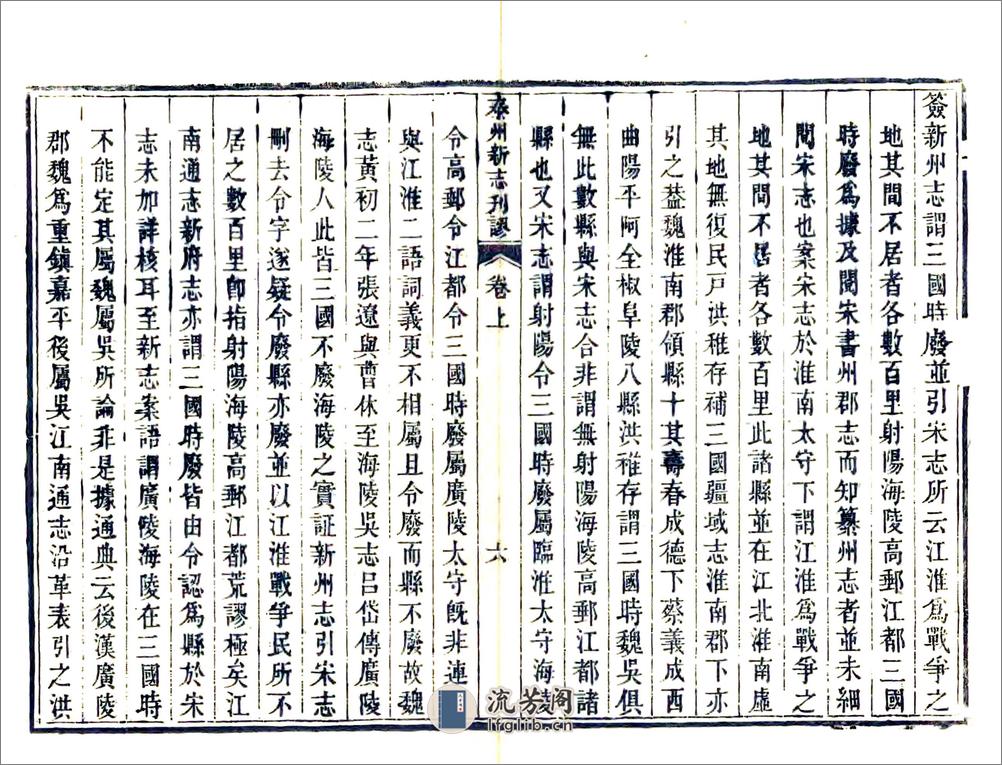 簽新州志謂三國時廢並引宋志所云江淮爲戰爭之
地其間不居者各數百里射陽海陵高郵江都三國
時廢爲據及閱宋書州郡志而知纂州志者並未細
閱宋志也案宋志於淮南太守下謂江淮爲戰爭之
地其間不居者各數百里此諸縣並在江北淮南虛
其地無復民戸洪稚存補三國疆域志淮南郡下亦
引之葢魏淮南郡領縣十其壽春成德下蔡義成西
曲陽平阿全椒阜陵八縣洪稚存謂三國時魏吳俱
無此數縣與宋志合非謂無射陽海陵高郵江都諸
縣也又宋志謂射陽令三國時廢屬臨淮太守海陵
泰州新志刊謬
卷上
六
令高郵令江都令三國時廢屬廣陵太守旣非連
與江淮二語詞義更不相屬且令廢而縣不廢故魏
志黃初二年張遼與曹休至海陵吳志呂岱傳廣陵
海陵人此皆三國不廢海陵之實証新州志引宋志
刪去令字遂疑令廢縣亦廢並以江淮戰爭民所不
居之數百里卽指射陽海陵高郵江都荒謬極矣江
南通志新府志亦謂三國時廢皆由令認爲縣於宋
志未加詳核耳至新志案語謂廣陵海陵在三國時
不能定其屬魏屬吳所論非是據通典云後漢廣陵
郡魏爲重鎮嘉平後屬吳江南通志沿革表引之洪
流芳阁
lfglib.cn